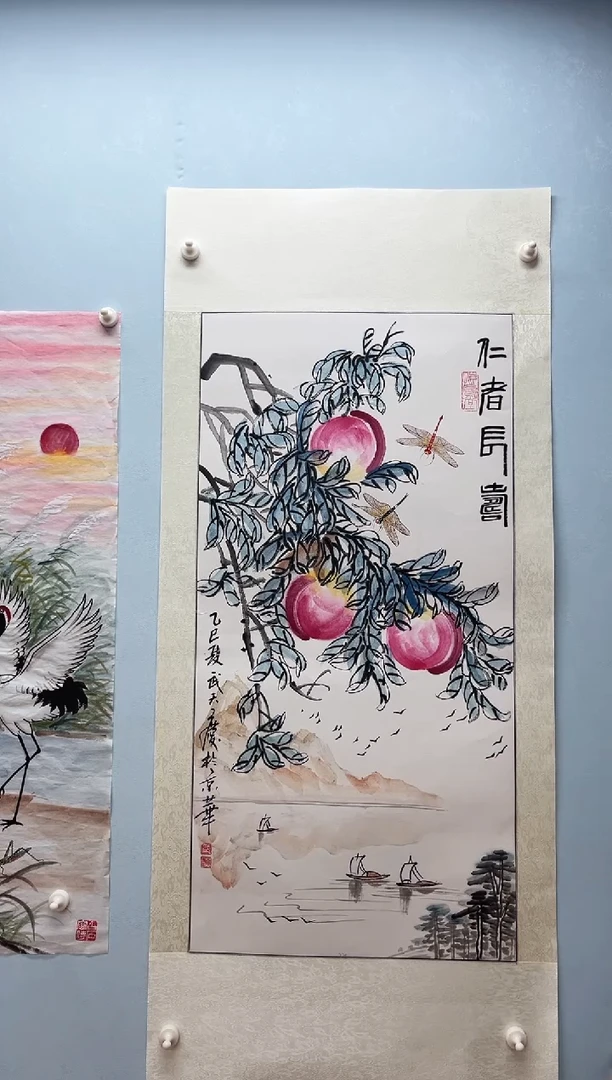 仁者長壽
乙巳夏武天慶於京華